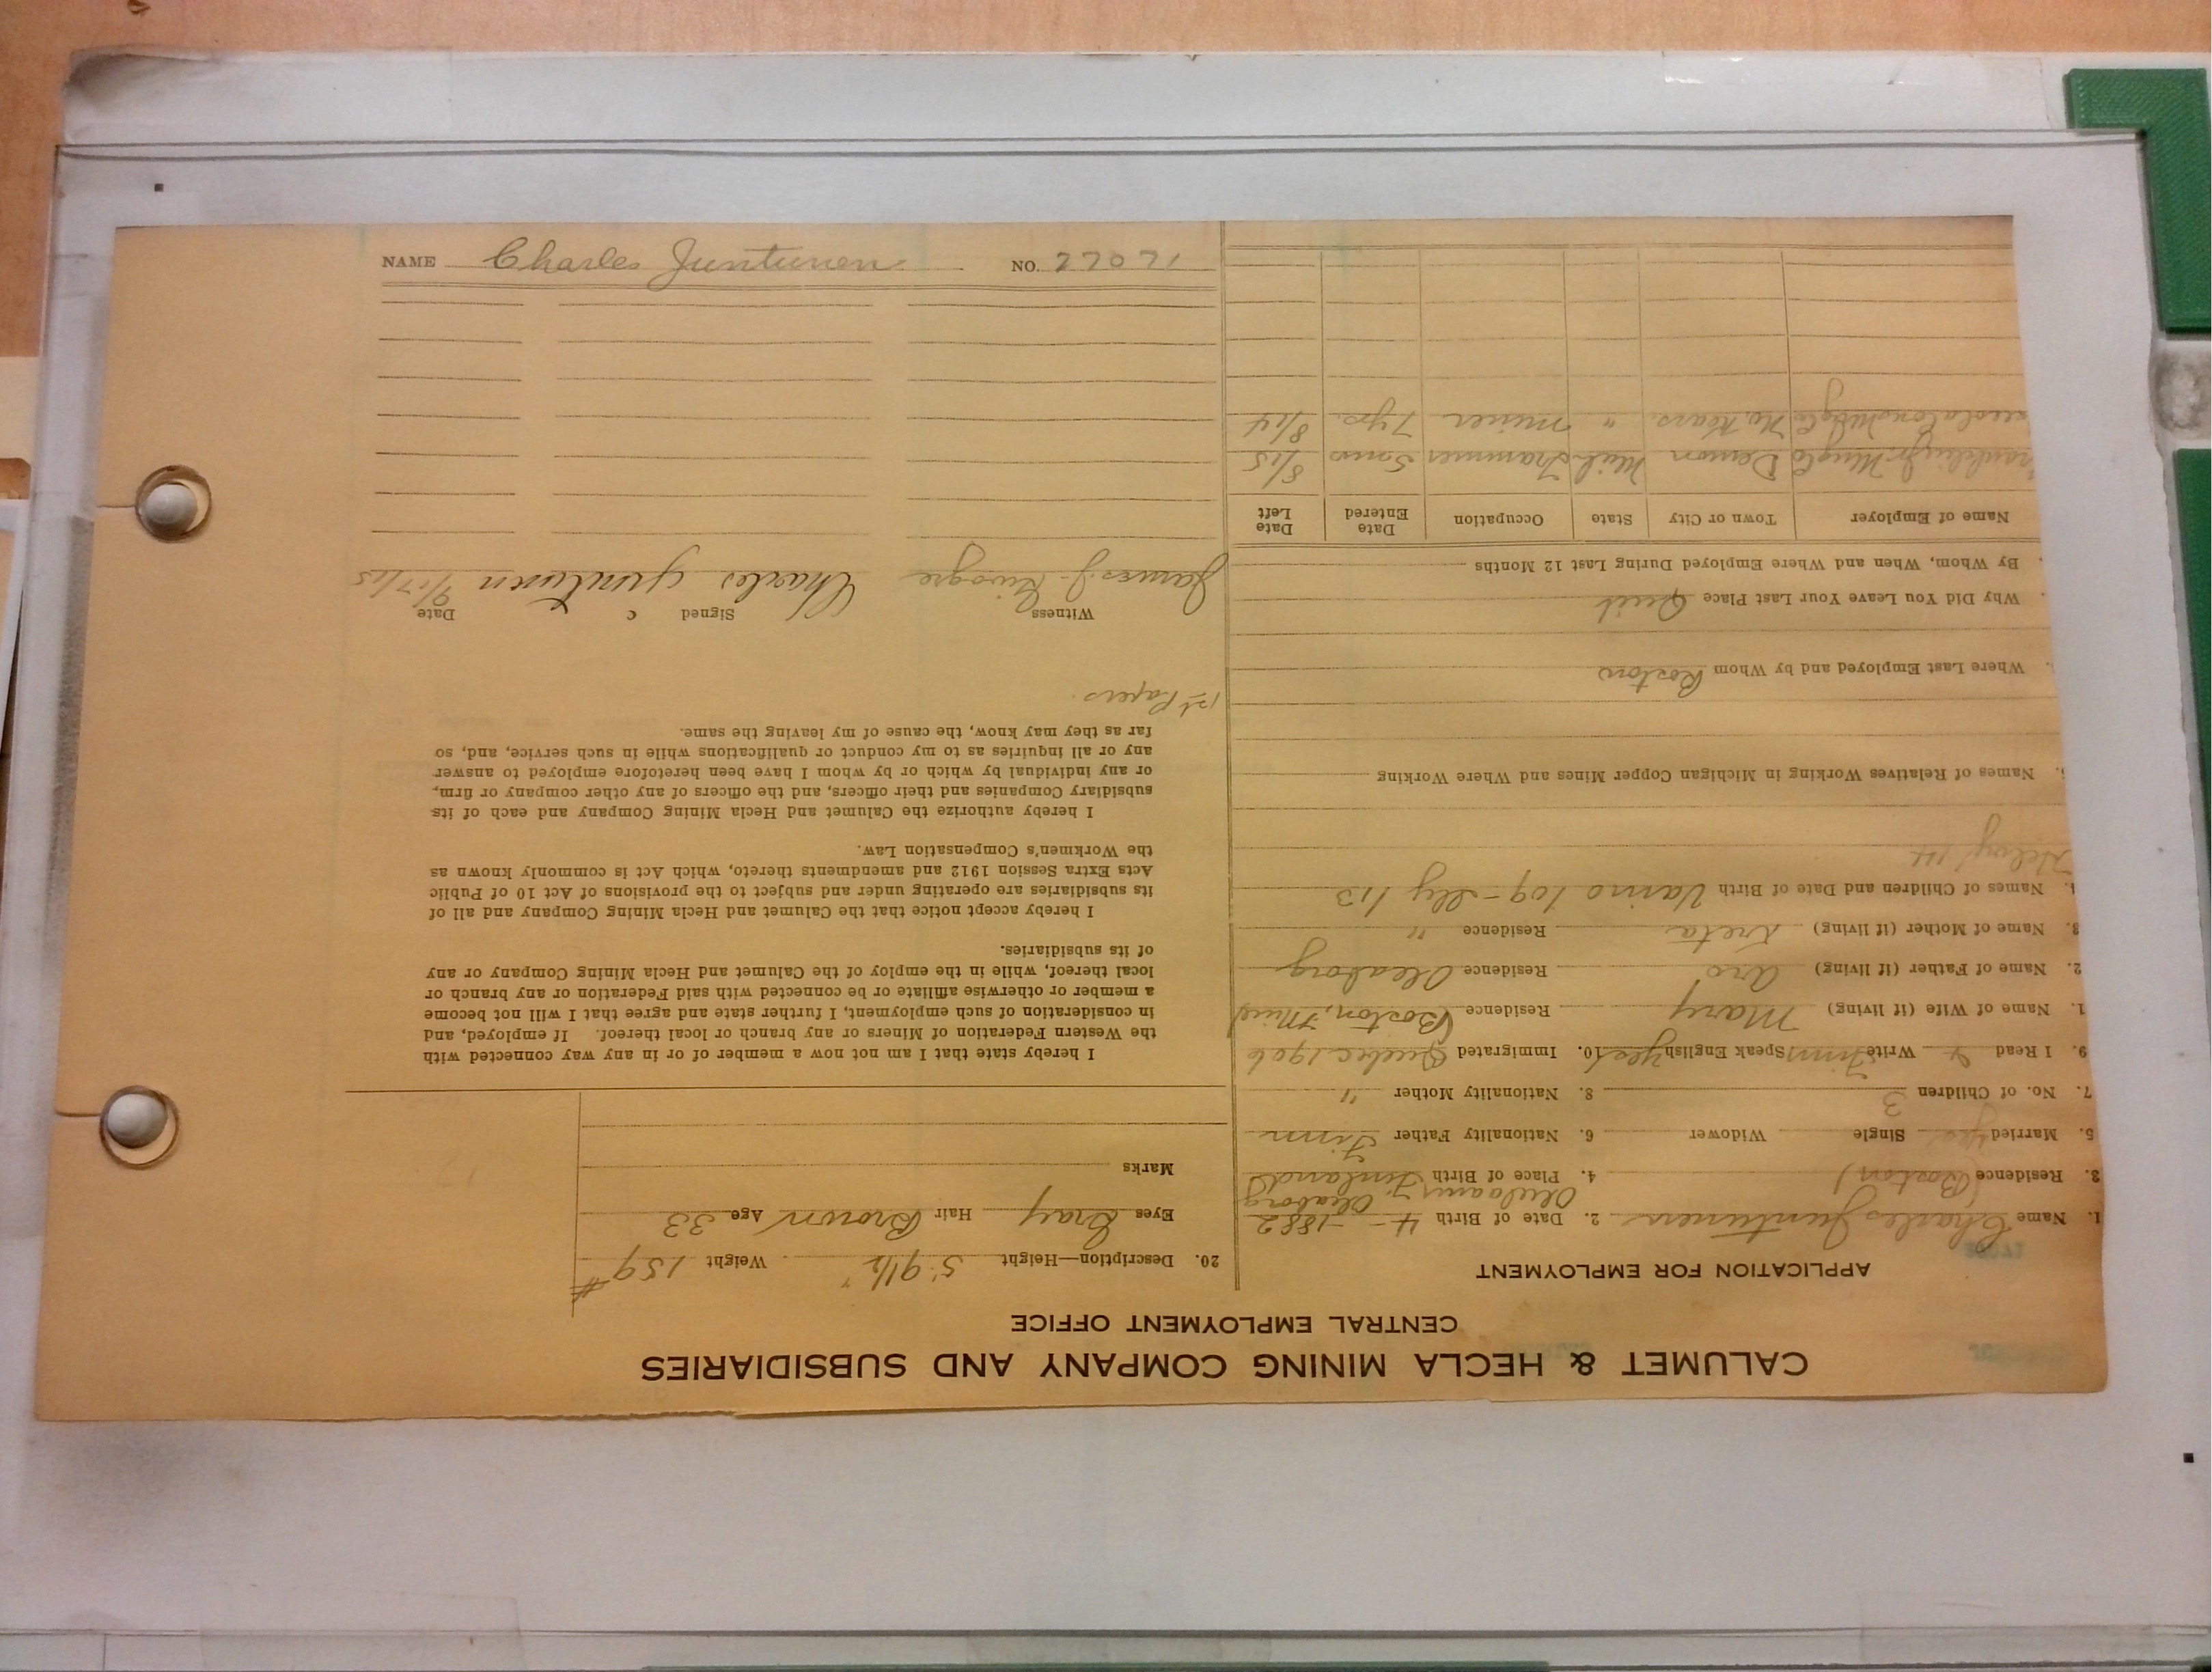 CALUMET & HECLA MINING COMPANY AND SUBSIDIARIES
CENTRAL EMPLOYMENT OFFICE
APPLICATION FOR EMPLOYMENT
1. Name Charles Juntunen 2. Date of Birth 4 - 1882
3. Residence (Boston) 4. Place of Birth Finland
5. Married yes Single Widower 6. Nationality Father Finn
7. No. of Children 3 8. Nationality Mother "
9. I Read & Write Finn Speak English yes 10. Immigrated 1906
1. Name of Wife (if living) Mary Residence Boston, Mich
2. Name of Father (if living) Residence Oleaborg
3. Name of Mother (if living) Kreta Residence "
4. Names of Children and Date of Birth
Names of Relatives Working in Michigan Copper Mines and Where Working
Where Last Employed and by Whom Boston
Why Did You Leave Your Last Place Quit
By Whom, When and Where Employed During Last 12 Months
Name of Employer Town or City State Occupation Date Entered Date Left
Trammer 8/15
" Miner 7 yrs. 8/14
20. Description—Height 5' 9 1/2" Weight 159 #
Eyes Gray Hair Brown Age 33
Marks
I hereby state that I am not now a member of or in any way connected with
the Western Federation of Miners or any branch or local thereof. If employed, and
in consideration of such employment, I further state and agree that I will not become
a member or otherwise affiliate or be connected with said Federation or any branch or
local thereof, while in the employ of the Calumet and Hecla Mining Company or any
of its subsidiaries.
I hereby accept notice that the Calumet and Hecla Mining Company and all of
its subsidiaries are operating under and subject to the provisions of Act 10 of Public
Acts Extra Session 1912 and amendments thereto, which Act is commonly known as
the Workmen's Compensation Law.
I hereby authorize the Calumet and Hecla Mining Company and each of its
subsidiary Companies and their officers, and the officers of any other company or firm,
or any individual by which or by whom I have been heretofore employed to answer
any or all inquiries as to my conduct or qualifications while in such service, and, so
far as they may know, the cause of my leaving the same.
1st Papers.
Witness Signed Date
James J. Charles Juntunen 9/17/15
NAME Charles Juntunen NO. 27071